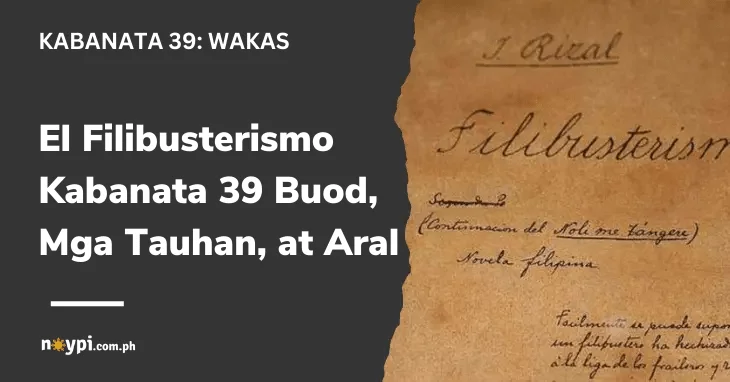 KABANATA 39: WAKAS
El Filibusterismo
Kabanata 39 Buod,
Mga Tauhan, at Aral
noypi.com.ph
J. Rizal
Filibusterism
(Continuacion del Noli me tángere)
Novela filipina
Facilmente se puede supon
un filibustero ha hechizad
á la liga de los fraileros y r